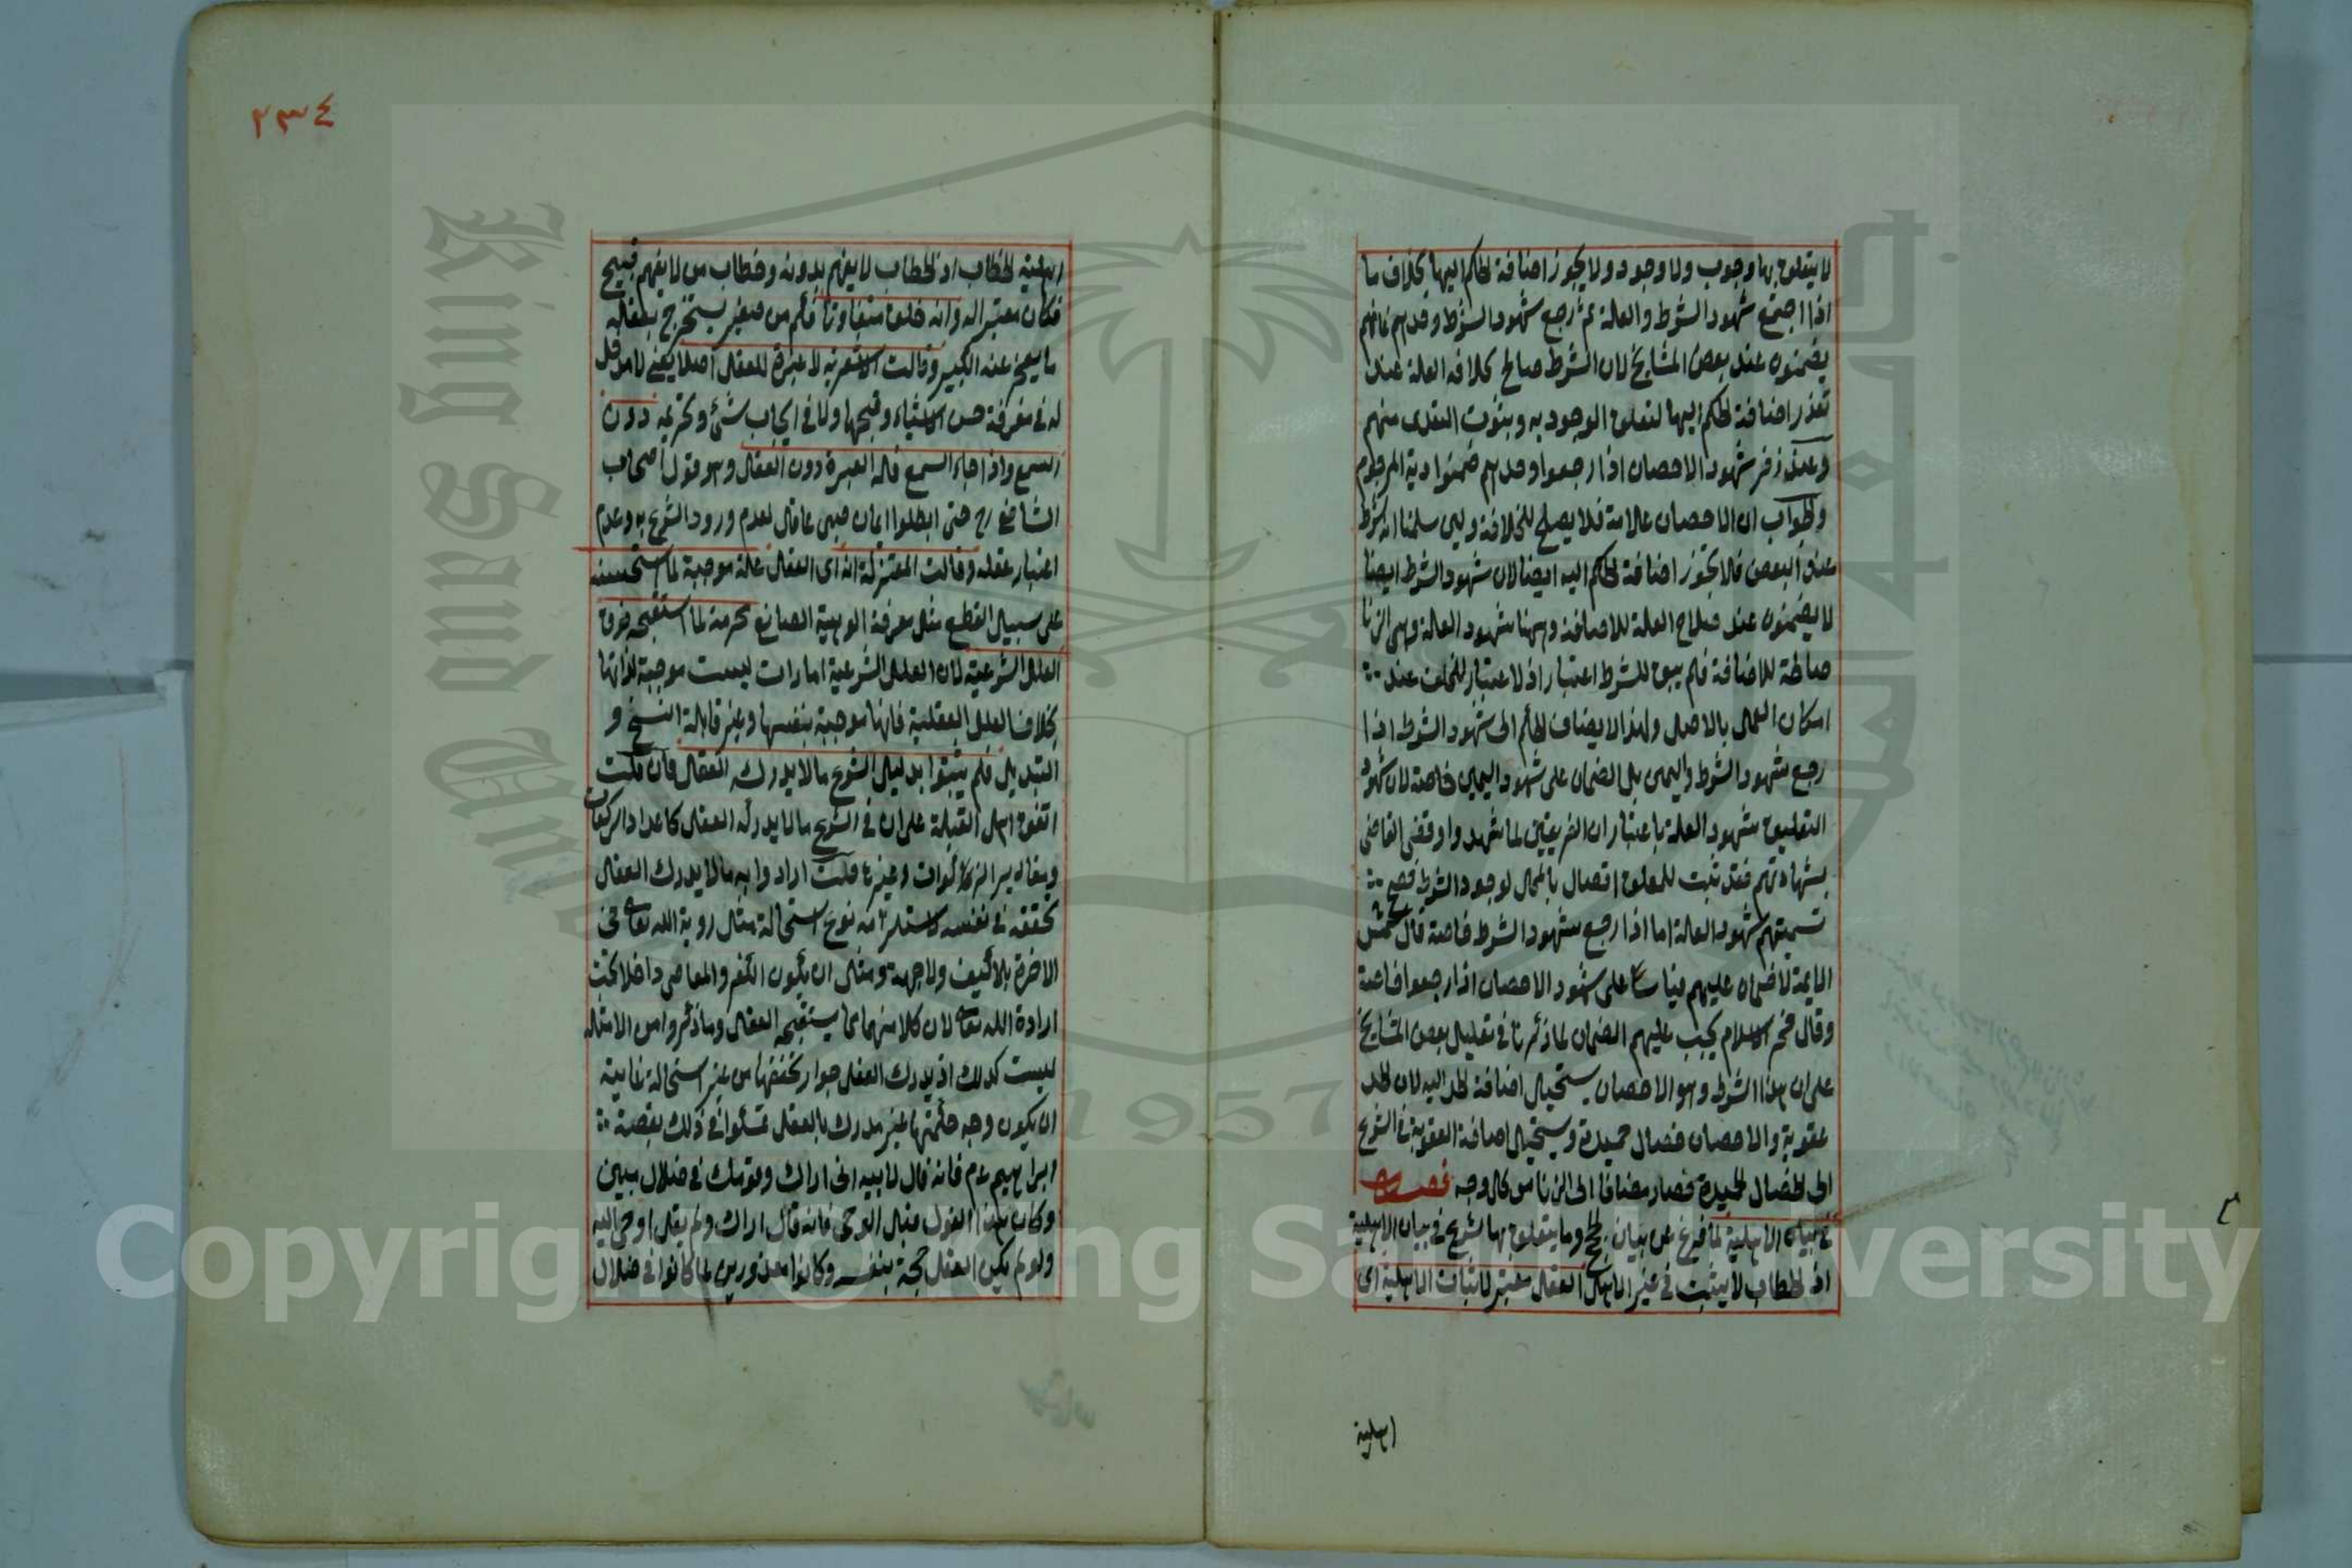 لا يتعلق بها وجوب ولا وجود ولا يجوز اضافة الحكم اليها بخلاف ما
اذا اجتمع شهود الشرط والعلة ثم رجع شهود الشرط وحدهم فانهم
يضمنون عند بعض المشايخ لان الشرط صالح لخلافة العلة عند
تعذر اضافة الحكم اليها لتعلق الوجود به وبثوت التعدى منهم
وعند زفر شهود الاحصان اذا رجعوا وحدهم ضمنوا دية المرجوم
والجواب ان الاحصان علامة فلا يصلح للخلافة ولين سلمنا انه شرط
عند البعض فلا يجوز اضافة الحكم اليه ايضا لان شهود الشرط ايضا
لا يضمنون عند صلاح العلة للاضافة وههنا شهود العلة وهى الزنا
صالحة للاضافة فلم يبق للشرط اعتبار اذ لا اعتبار للخلف عند
امكان العمل بالاصل ولهذا لا يضاف الحكم الى شهود الشرط اذا
رجع شهود الشرط واليمين بل الضمان على شهود اليمين خاصة لان شهود
التعليق شهود العلة باعتبار ان الفريقين لما شهد وا وقضى القاضى
بشهادتهم فقد ثبت للمعلق اتصال بالمحل لوجود الشرط فصح
تسميتهم شهود العلة اما اذا رجع شهود الشرط خاصة قال شمس
الايمة لا ضمان عليهم قياسا على شهود الاحصان اذا رجعوا خاصة
وقال فخر الاسلام يجب عليهم الضمان لما ذكرنا فى تعليل بعض المشايخ
على ان هذا الشرط وهو الاحصان يستحيل اضافة الحد اليه لان الحد
عقوبة والاحصان خصال حميدة ويستحيل اضافة العقوبة فى الشرع
الى الخصال الحميدة فصار مضافا الى الزنا من كل وجه فصل
فى بيان الاهلية لما فرغ عن بيان الحجج وما يتعلق بها شرع فى بيان الاهلية
اذ الخطاب لا يثبت فى غير الاهل العقل معتبر لاثبات الاهلية اى
اهلية
٢٣٤
اهلية الخطاب اذ الخطاب لا يفهم بدونه وخطاب من لا يفهم قبيح
فكان معتبرا له وانه خلق متفاوتا فكم من صغير يستخرج بعقله
ما يعجز عنه الكبير وقالت الاشعرية لا عبرة للعقل اصلا يعنى لا مدخل
له فى معرفة حسن الاشياء وقبحها ولا فى ايجاب شئ وتحريمه دون
السمع واذا جاء السمع فله العبرة دون العقل وهو قول اصحاب
الشافعى رح حتى ابطلوا ايمان صبى عاقل لعدم ورود الشرع به وعدم
اعتبار عقله وقالت المعتزلة انه اى العقل علة موجبة لما استحسنه
على سبيل القطع مثل معرفة الوهية الصانع محرمة لما استقبحه فوق
العلل الشرعية لان العلل الشرعية امارات ليست موجبة لذاتها
بخلاف العلل العقلية فانها موجبة بنفسها وغير قابلة النسخ و
التبديل فلم يثبتوا بدليل الشرع ما لا يدركه العقل فان قلت
اتفق اهل القبلة على ان فى الشرع ما لا يدركه العقل كاعداد الركعات
ومقادير الزكوات وغيرها قلت ارادوا به ما لا يدرك العقل
تحققه فى نفسه لاستلزامه نوع استحالة مثل روية الله تعالى فى
الاخرة بلا كيف ولا جهة ومثل ان يكون الكفر والمعاصى داخلا تحت
ارادة الله تعالى لان كلا منهما مما يستقبحه العقل وما ذكروا من الامثلة
ليست كذلك اذ يدرك العقل جواز تحققها من غير استحالة غايته
ان يكون وجه حكمتها غير مدرك بالعقل تمسكوا فى ذلك بقصة
ابراهيم عم فانه قال لابيه انى اراك وقومك فى ضلال مبين
وكان هذا القول قبل الوحى فانه قال اراك ولم يقل اوحى اليه
ولو لم يكن العقل حجة بنفسه وكانوا معذورين لما كانوا فى ضلال
King Saud University
1957
Copyright © King Saud University